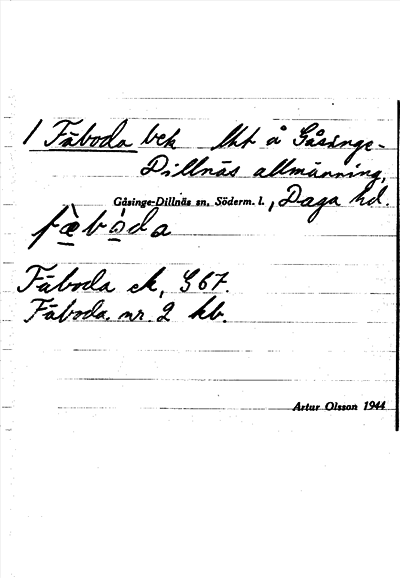 1 Fäboda bek lht å Gåsinge-
Dillnäs allmänning,
Gåsinge-Dillnäs sn, Söderm. l., Daga hd.
fæ̀bòda
Fäboda ek, G 67.
Fäboda nr. 2 kb.
Artur Olsson 1944